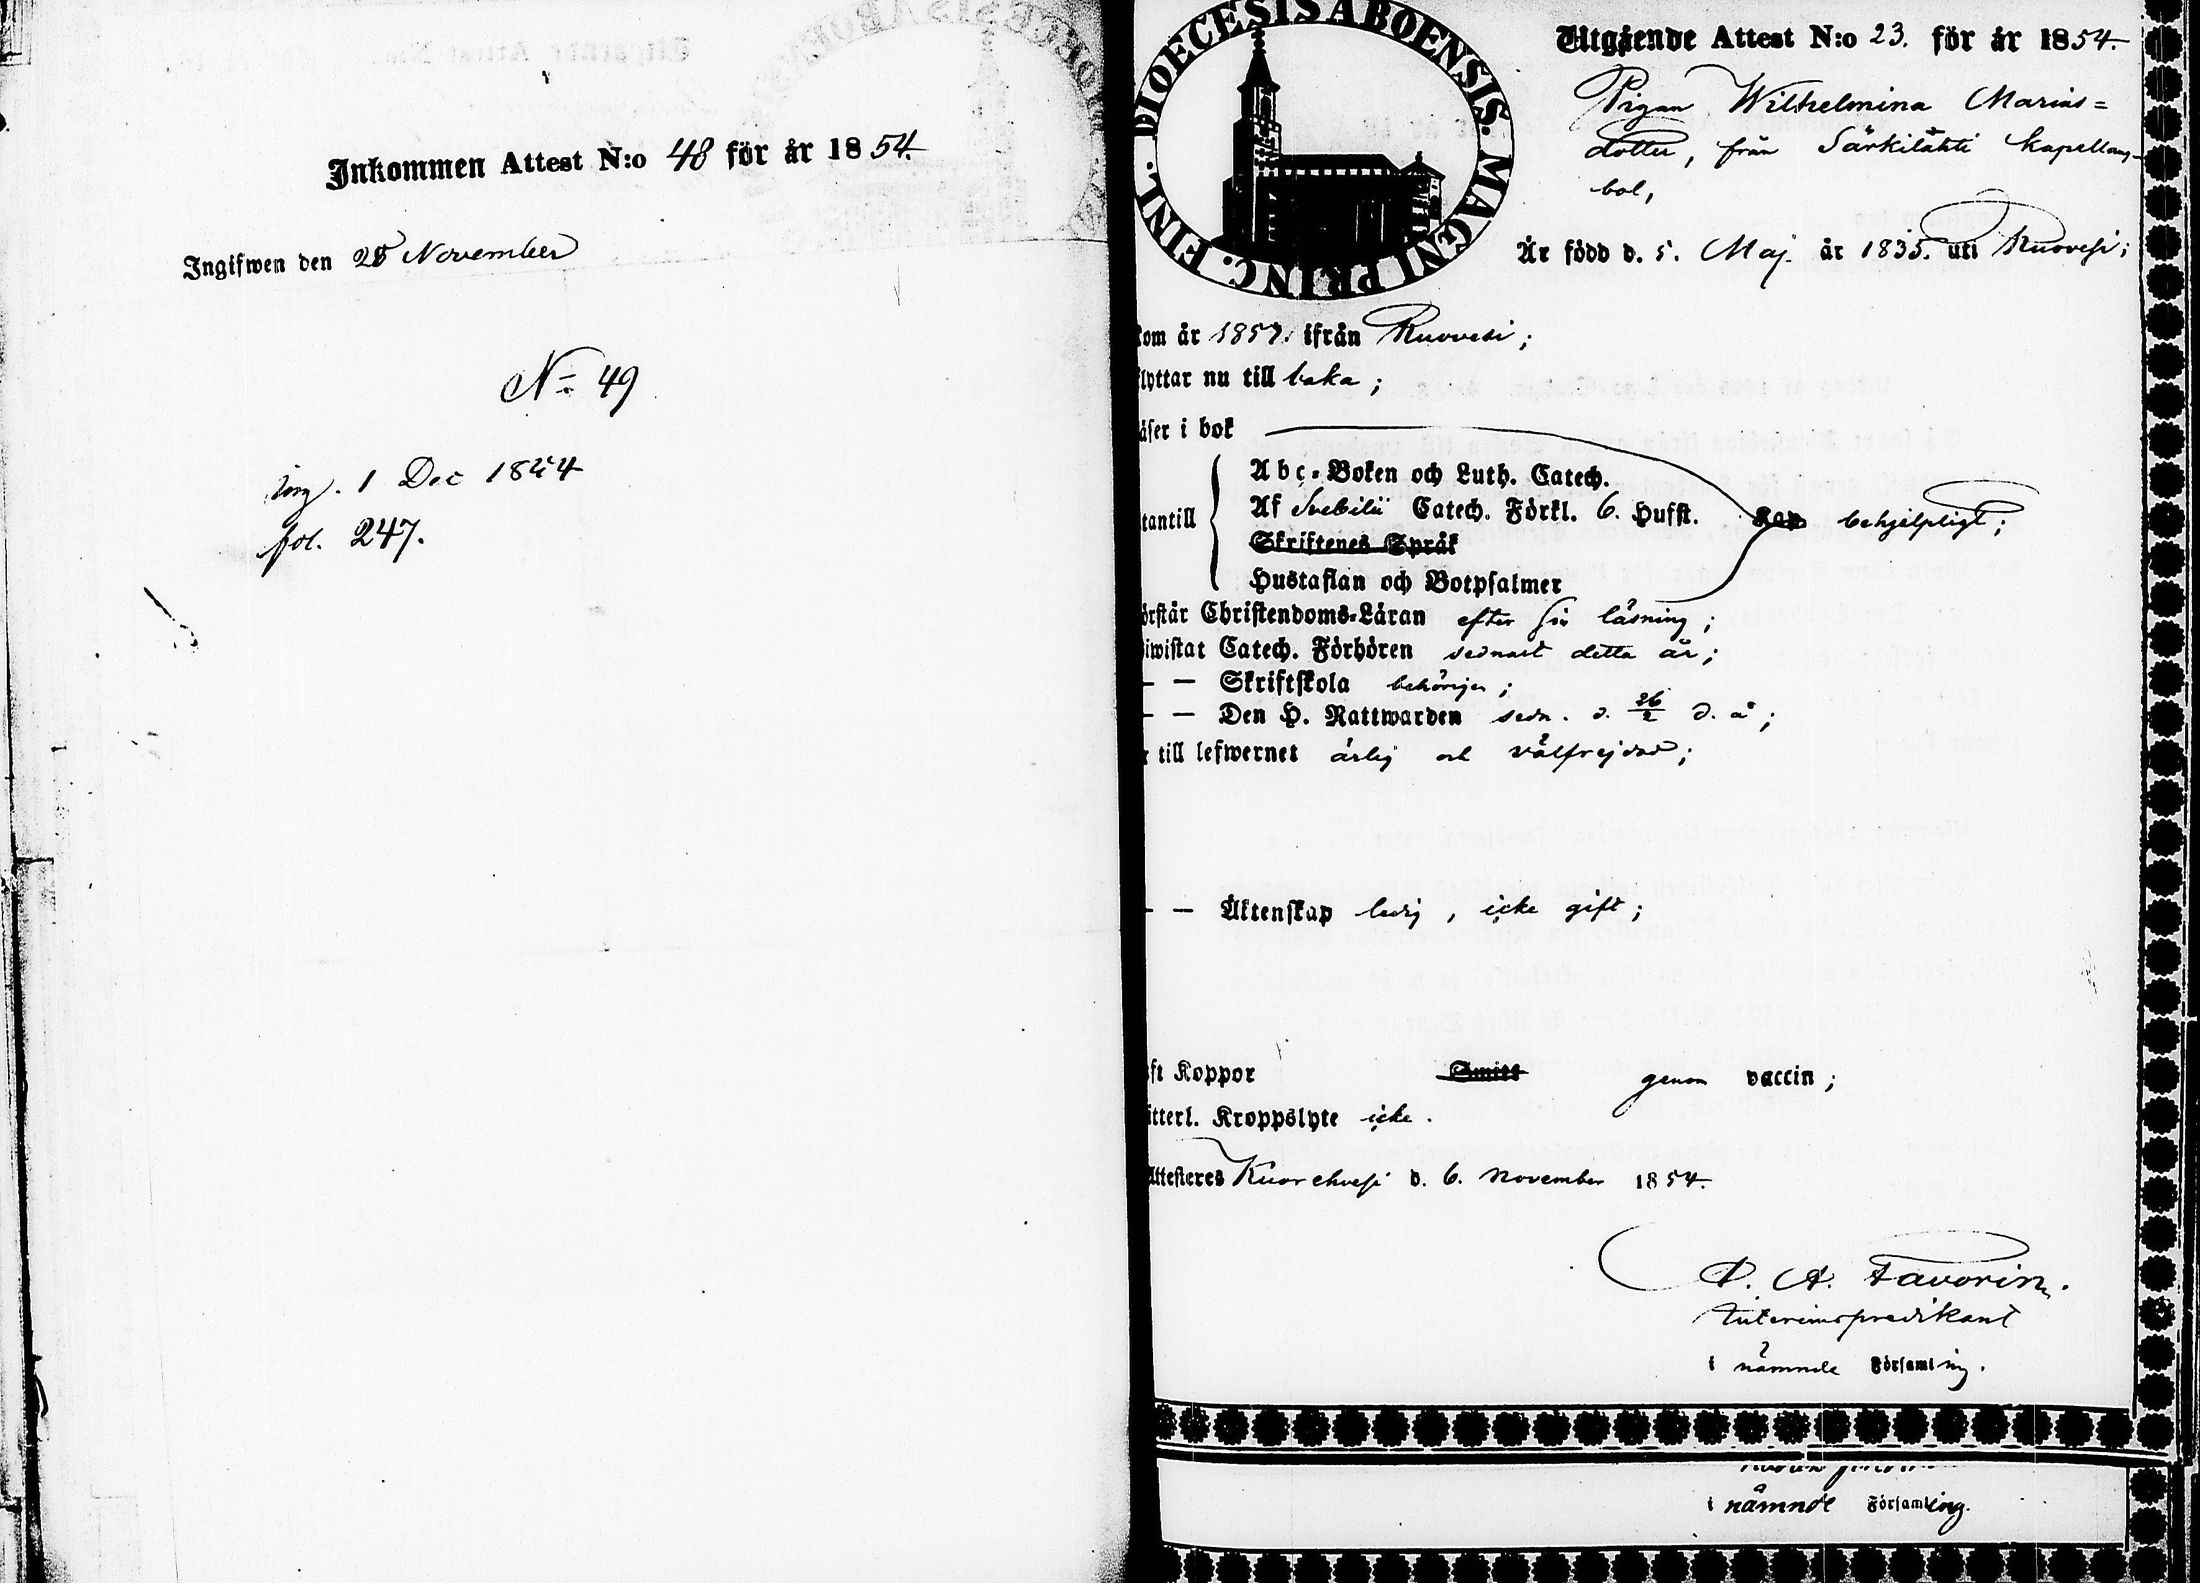 Inkommen Attest N:o 48 för år 1854.
Ingifwen den 28 November
N:o 49
ing. 1 Dec 1854
fol. 247.
DIOECESIS ABOENSIS. MAGNI PRINC. FINL.
Utgående Attest N:o 23. för år 1854.
Pigan Wilhelmina Marias=
dotter, från Särkilahti kapellans-
bol,
Är född d. 5. Maj. år 1835. uti Ruovesi;
kom år 185 ifrån Ruovesi;
flyttar nu till baka;
läser i bok
Abc-Boken och Luth. Catech.
utantill Af Svebilii Catech. Förkl. 6. Hufst. behjelpligt;
Skriftenes Språk
Hustaflan och Botpsalmer
förstår Christendoms-Läran efter sin läsning;
biwistat Catech. Förhören sednast detta år;
— — Skriftskola behörigen;
— — Den H. Nattwarden sedn. d. 26/2 d. å;
är till lefwernet ärlig och välfrejdad;
— — Äktenskap ledig, icke gift;
haft Koppor Smitt genom vaccin;
witterl. Kroppslyte icke.
Attesteres Kuorehvesi d. 6. November 1854.
A. Favorin.
Interimspredikant
i nämnde Församling.
i nämnde Församling.